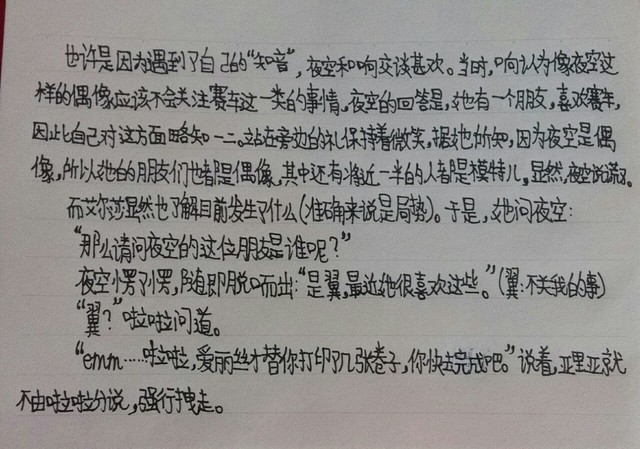 也许是因为遇到了自己的“知音”，夜空和响交谈甚欢。当时，响认为像夜空这
样的偶像应该不会关注赛车这一类的事情。夜空的回答是，她有一个朋友，喜欢赛车，
因此自己对这方面略知一二。站在旁边的礼保持着微笑，据她所知，因为夜空是偶
像，所以她的朋友们也都是偶像，其中还有将近一半的人都是模特儿。显然，夜空说谎了。
而艾尔莎显然也了解目前发生了什么（准确来说是局势）。于是，她问夜空：
“那么请问夜空的这位朋友是谁呢？”
夜空愣了愣，随即脱口而出：“是翼，最近她很喜欢这些。”（翼：不关我的事）
“翼？”啦啦问道。
“emm……啦啦，爱丽丝才替你打印了几张卷子，你快去完成吧。”说着，亚里亚就
不由啦啦分说，强行拽走。